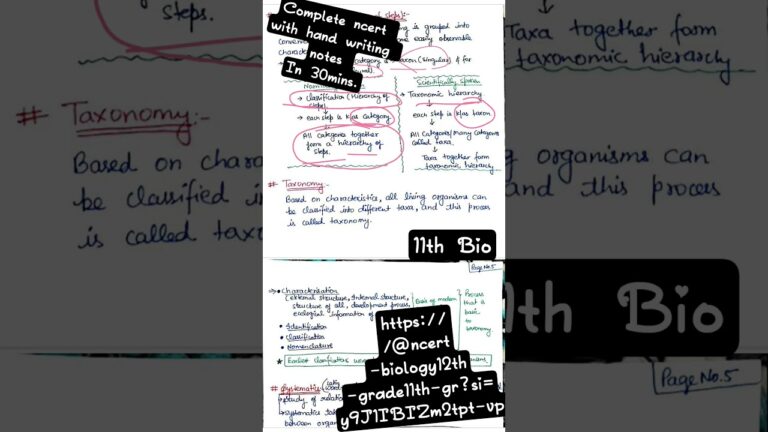 Complete ncert
with hand writing
notes
In 30mins.
steps.
Taxa together form
taxonomic hierarchy
is grouped into
easily observable
category
taxon (singular) & for
Scientifically spoken
→ Classification (Hierarchy of
steps)
→ each step is k/as category
All categories together
form a hierarchy of
steps.
→ Taxonomic hierarchy
each step is k/as taxon.
All categories/Many categories
called taxa.
Taxa together form
taxonomic hierarchy
# Taxonomy:-
Based on chara
be classified i
is called taxo
# Taxonomy:-
Based on characteristics, all living organisms can
be classified into different taxa, and this process
is called taxonomy.
organisms can
and this process
11th Bio
11th Bio
Page No.5
→• Characterisation
(external structure, Internal structure,
structure of cell, development process,
ecological information of
• Identification
• Classification
• Nomenclature
Basis of modern
Process
that is
basic
to
taxonomy.
★ Earliest classifications were
humans
# Systematics
→ Study of relation
→ Systematics tak
between organ
https://
/@ncert
-biology12th
-grade11th-gr?si=
y9J1IBIZm2tpt-vp
Page No.5